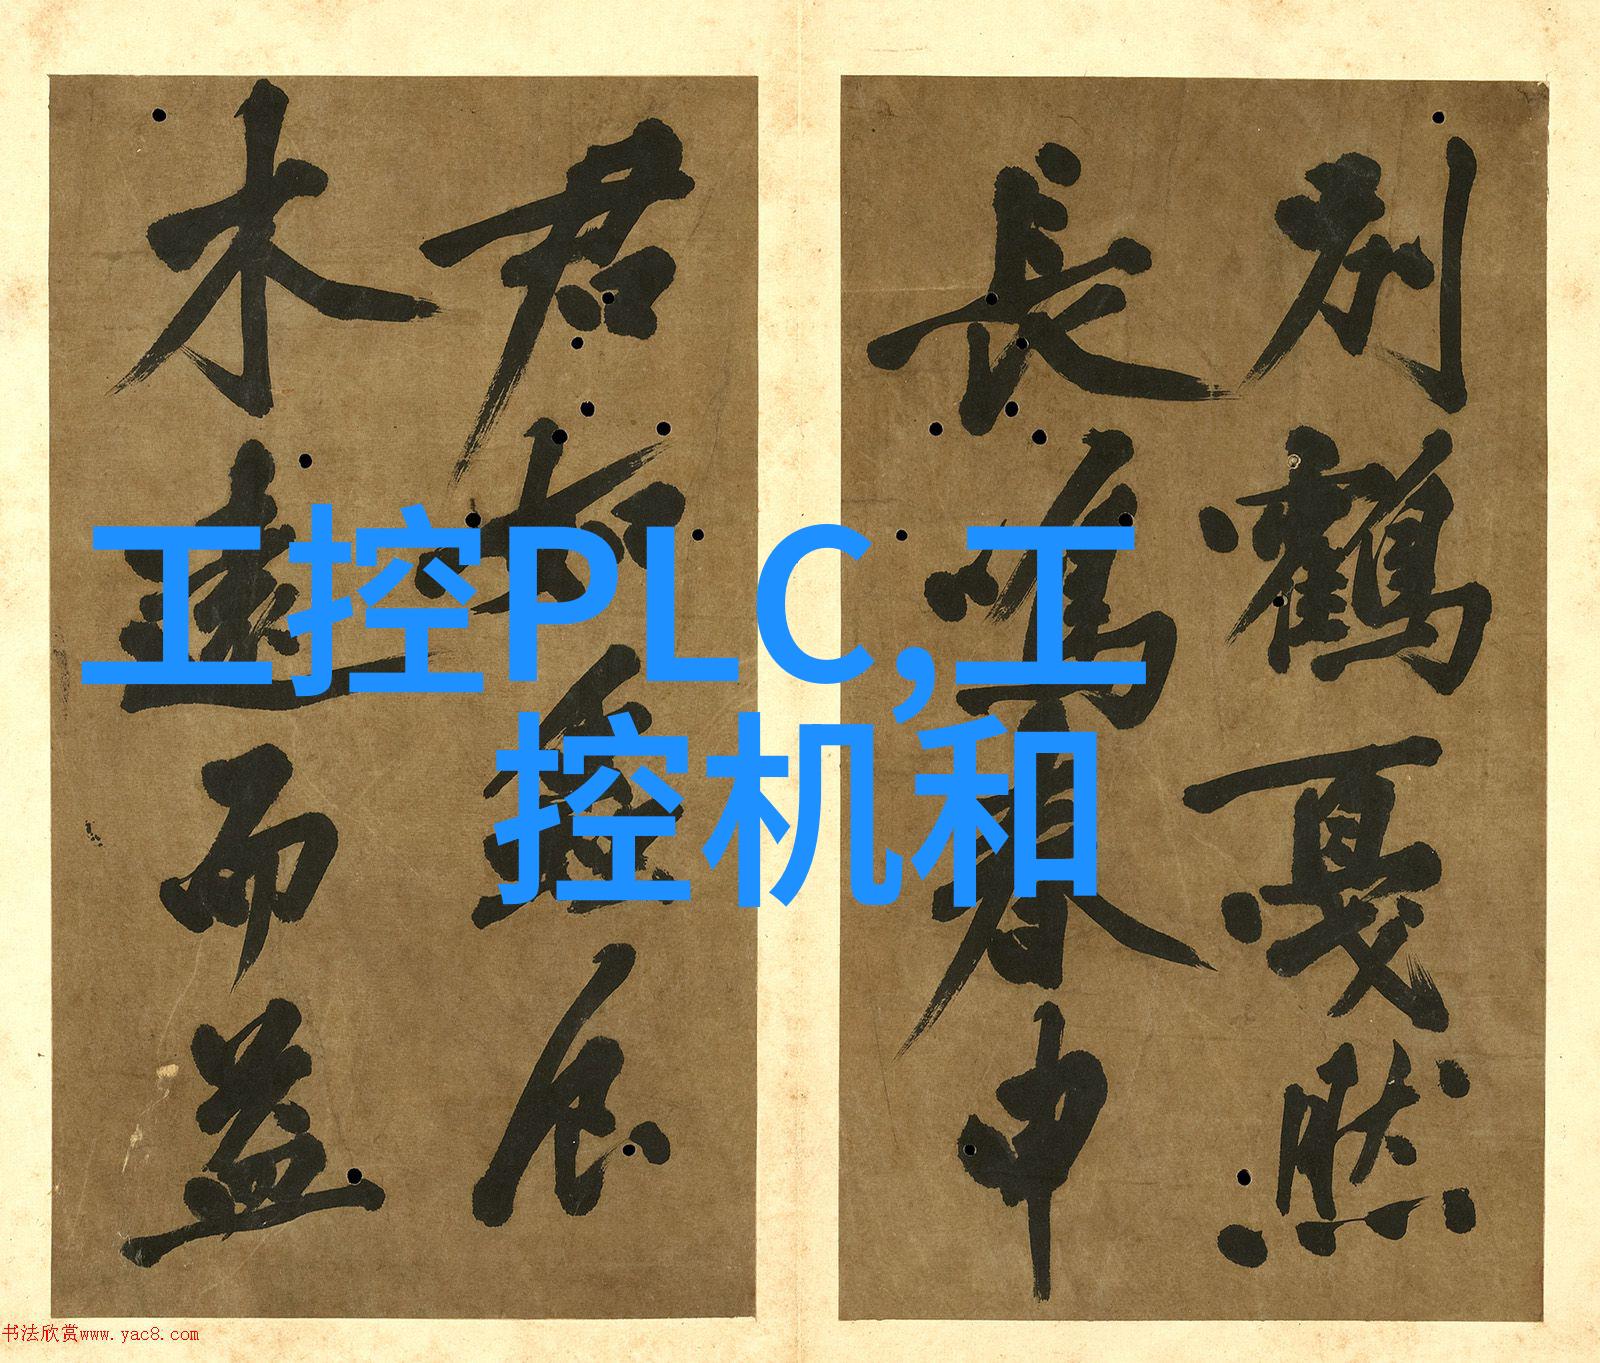 別鶴戛然
長鳴春申
君
木遠而益
工控PLC,工
控机和
书法欣赏www.yac8.com